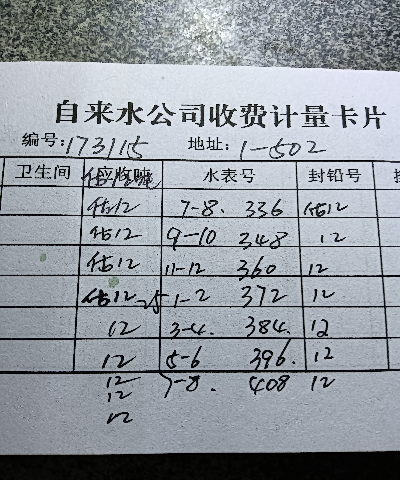 自来水公司收费计量卡片
编号:173115 地址: 1-502
卫生间 水表号 封铅号
估12 7-8. 336 估12
估12 9-10 348 12
估12 11-12 360 12
估12 25 1-2 372 12
12 3-4. 384. 12
12 5-6 396. 12
12 7-8. 408 12
12
12